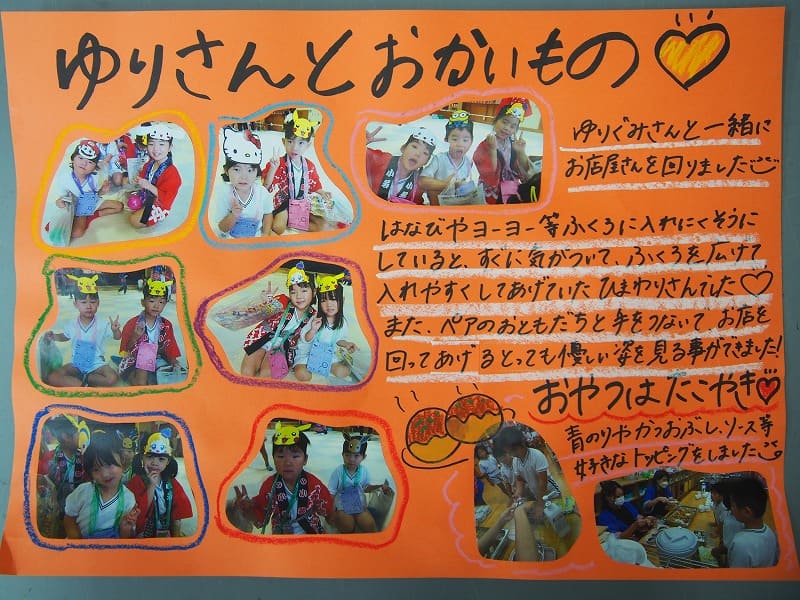 ゆりさんとおかいもの
ゆりぐみさんと一緒に
お店屋さんを回りました
はなびやヨーヨー等ふくろに入れにくそうに
していると、すぐに気がついて、ふくろを広げて
入れやすくしてあげていたひまわりさんでした♡
また、ペアのおともだちと手をつないで お店を
回ってあげるとっても優しい姿を見る事ができました!
おやつはたこやき
青のりやかつおぶし、ソース等
好きなトッピングをしました